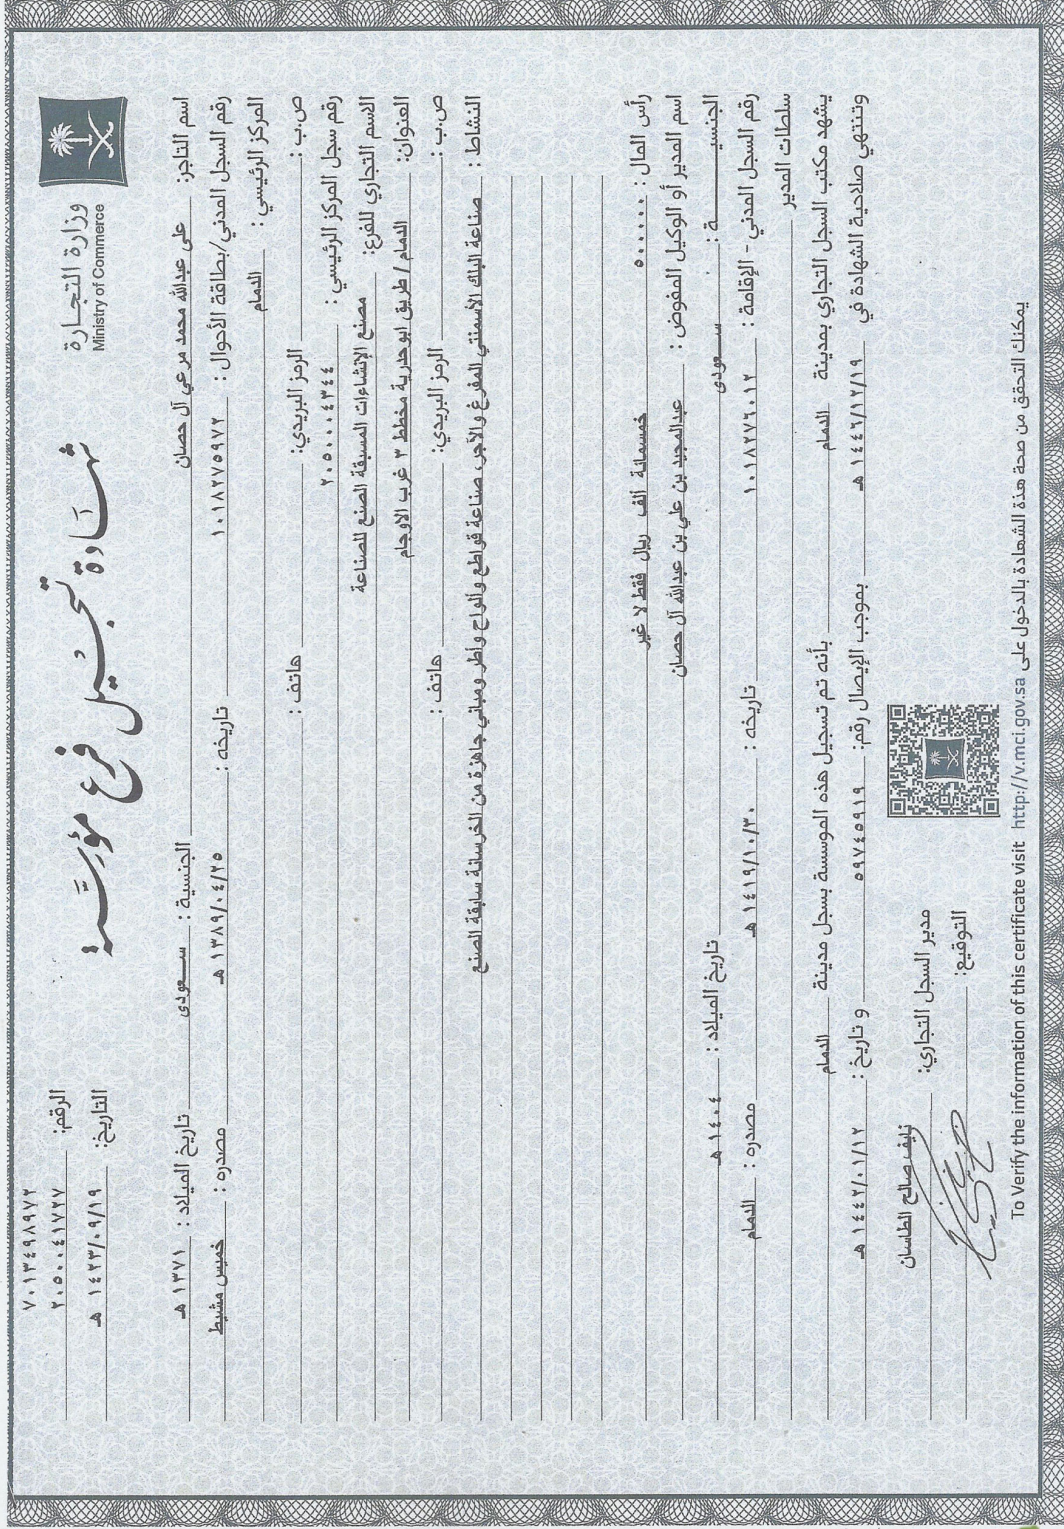 وزارة التجارة
Ministry of Commerce
شهادة تسجيل فرع مؤسسة
٧٠١٣٤٩٨٩٧٢
الرقم: ٢٠٥٠٠٤١٧٢٧
التاريخ: ١٤٢٣/٠٩/١٩ هـ
اسم التاجر: على عبدالله محمد مرعي آل حصان الجنسية : سعودى تاريخ الميلاد : ١٣٧١ هـ
رقم السجل المدني/بطاقة الأحوال : ١٠١٨٢٧٥٩٧٢ تاريخه : ١٣٨٩/٠٤/٢٥ هـ مصدره : خميس مشيط
المركز الرئيسي : الدمام
ص.ب : الرمز البريدي: هاتف :
رقم سجل المركز الرئيسي : ٢٠٥٠٠٠٤٣٤٤
الاسم التجاري للفرع: مصنع الإنشاءات المسبقة الصنع للصناعة
العنوان: الدمام / طريق ابوحدرية مخطط ٣ غرب الاوجام
ص.ب : الرمز البريدي: هاتف :
النشاط : صناعة البلك الأسمنتي المفرغ والآجر، صناعة قواطع والواح واطر ومباني جاهزة من الخرسانة سابقة الصنع
رأس المال : ٥٠٠٠٠٠ خمسمائة الف ريال فقط لا غير
اسم المدير أو الوكيل المفوض : عبدالمجيد بن علي بن عبدالله آل حصان
الجنسيـــــة : سعودى تاريخ الميلاد : ١٤٠٤ هـ
رقم السجل المدني - الإقامة : ١٠١٨٢٧٦٠١٢ تاريخه : ١٤١٩/١٠/٣٠ هـ مصدره : الدمام
سلطات المدير
يشهد مكتب السجل التجاري بمدينة الدمام بأنه تم تسجيل هذه الموسسة بسجل مدينة الدمام
وتنتهي صلاحية الشهادة في ١٤٤٦/١٢/١٩ هـ بموجب الإيصال رقم: ٥٩٧٤٥٩١٩ و تاريخ : ١٤٤٢/٠١/١٢ هـ
مدير السجل التجاري: نايف صالح الطاسان
التوقيع:
يمكنك التحقق من صحة هذه الشهادة بالدخول على http://v.mci.gov.sa To Verify the information of this certificate visit